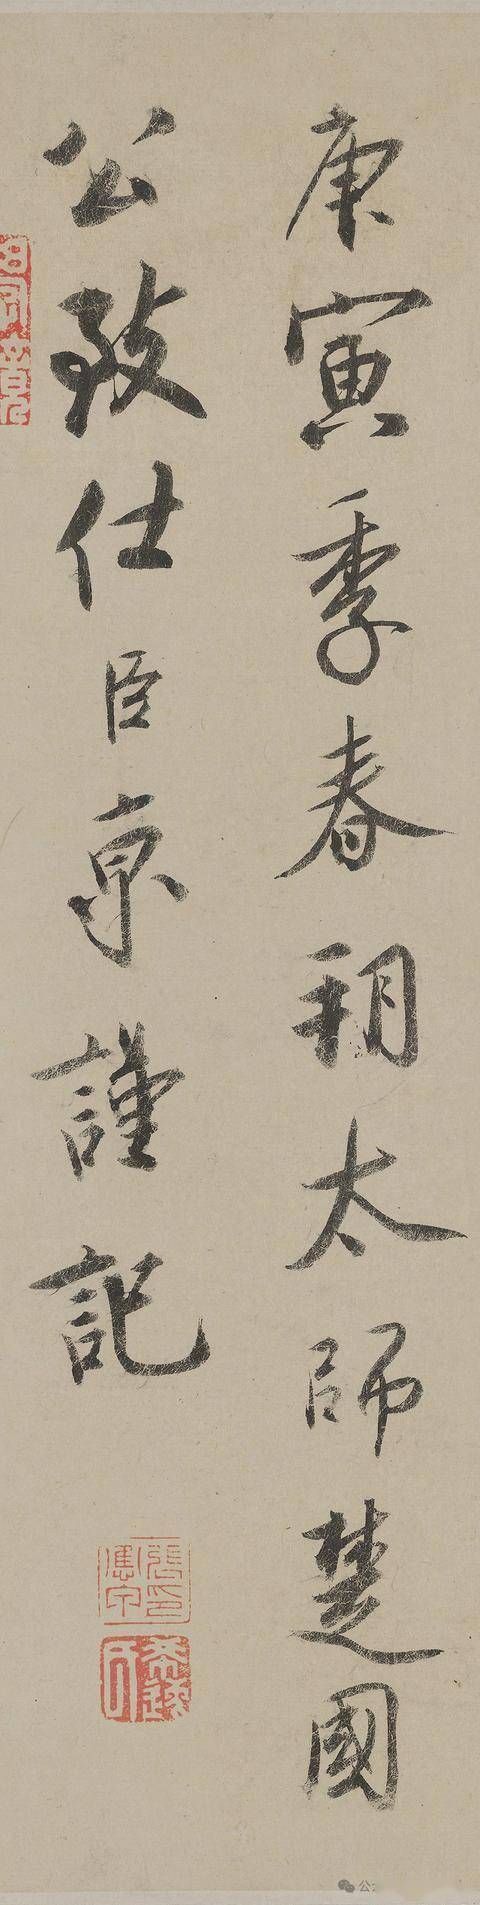 庚寅季春朔太師楚國
公致仕臣京謹記
公